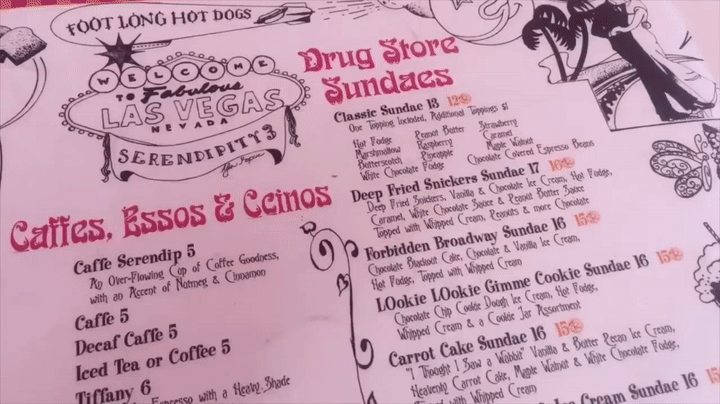 FOOT LONG HOT DOGS
WELCOME
TO Fabulous
LAS VEGAS
NEVADA
SERENDIPITY 3
Caffes, Essos & Ccinos
Caffe Serendip 5
An Over-Flowing Cup of Coffee Goodness,
with an Accent of Nutmeg & Cinnamon
Caffe 5
Decaf Caffe 5
Iced Tea or Coffee 5
Tiffany 6
Espresso with a Heavy Shade
Drug Store
Sundaes
Classic Sundae 13 12
One Topping Included, Additional Toppings $1
Hot Fudge Peanut Butter Strawberry
Marshmallow Raspberry Caramel
Butterscotch Pineapple Maple Walnut
White Chocolate Fudge Chocolate Covered Espresso Beans
Deep Fried Snickers Sundae 17 16
Deep Fried Snickers, Vanilla & Chocolate Ice Cream, Hot Fudge,
Caramel, White Chocolate Sauce & Peanut Butter Sauce
Topped with Whipped Cream, Peanuts & more Chocolate
Forbidden Broadway Sundae 16 15
Chocolate Blackout Cake, Chocolate & Vanilla Ice Cream,
Hot Fudge, Topped with Whipped Cream
LOokie LOokie Gimme Cookie Sundae 16 15
Chocolate Chip Cookie Dough Ice Cream, Hot Fudge,
Whipped Cream & a Cookie Jar Assortment
Carrot Cake Sundae 16 15
"I Thought I Saw a Wabbit" Vanilla & Butter Pecan Ice Cream,
Heavenly Carrot Cake, Maple Walnut & White Chocolate Fudge,
Topped with Whipped Cream
Cream Sundae 16 15